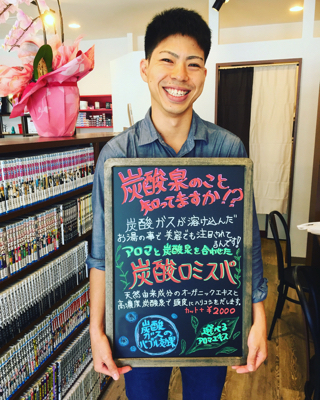 炭酸泉のこと
知ってますか!?
炭酸ガスが溶け込んだ
お湯の事で美容にも注目されて
るんです!!
アロマと炭酸泉を合わせた
炭酸ロミスパ
天然由来成分のオーガニックエキスと
高濃度炭酸泉で頭皮にハリコシをだします。
カット+¥2000
炭酸
ガスの
バブル効果
選べる
アロマエキス